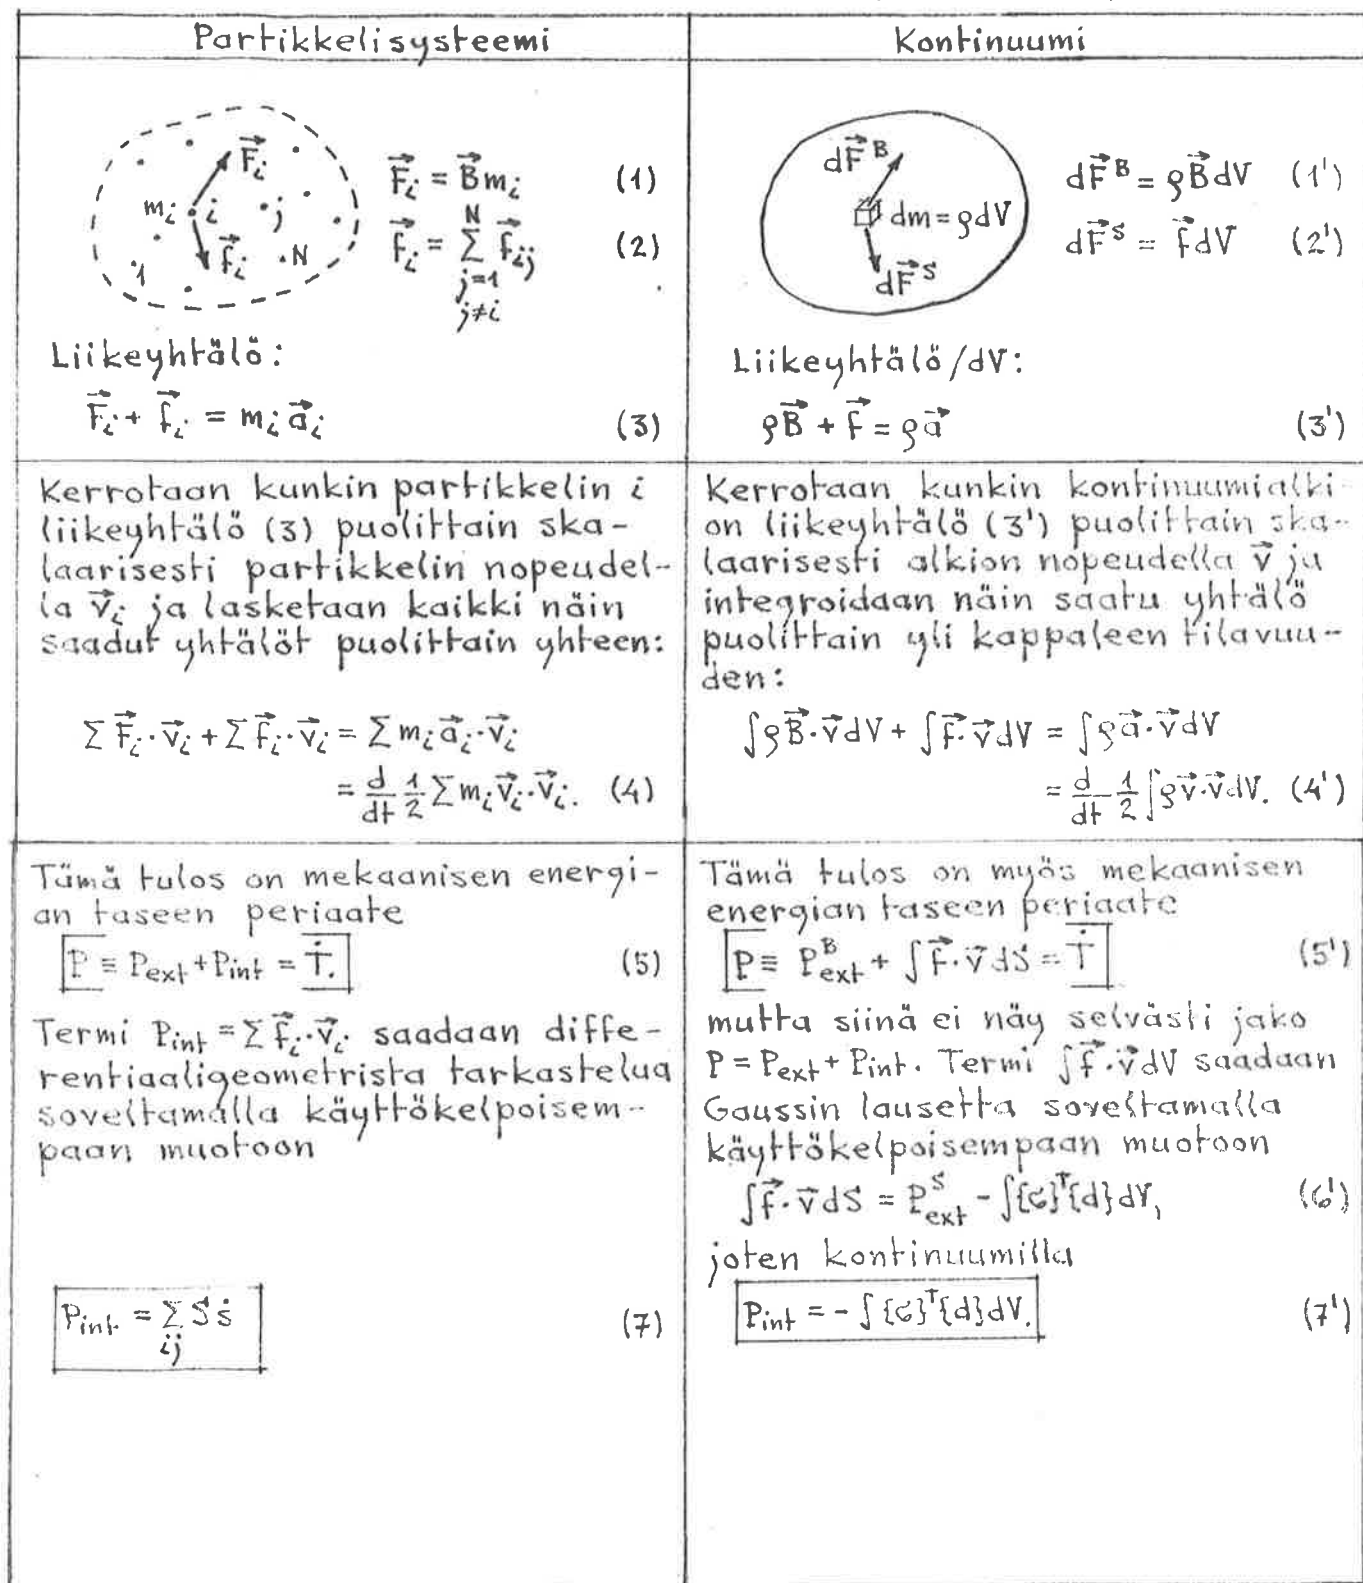 Partikkelisysteemi
F⃗ᵢ
mᵢ i j
f⃗ᵢ N
1
F⃗ᵢ = B⃗mᵢ (1)
f⃗ᵢ = Σ f⃗ᵢⱼ (2)
N
j=1
j≠i
Liikeyhtälö:
F⃗ᵢ + f⃗ᵢ = mᵢ a⃗ᵢ (3)
Kerrotaan kunkin partikkelin i
liikeyhtälö (3) puolittain ska-
laarisesti partikkelin nopeudel-
la v⃗ᵢ ja lasketaan kaikki näin
saadut yhtälöt puolittain yhteen:
Σ F⃗ᵢ·v⃗ᵢ + Σ f⃗ᵢ·v⃗ᵢ = Σ mᵢ a⃗ᵢ·v⃗ᵢ
= d/dt 1/2 Σ mᵢ v⃗ᵢ·v⃗ᵢ. (4)
Tämä tulos on mekaanisen energi-
an taseen periaate
P ≡ Pext + Pint = Ṫ. (5)
Termi Pint = Σ f⃗ᵢ·v⃗ᵢ saadaan diffe-
rentiaaligeometrista tarkastelua
soveltamalla käyttökelpoisem-
paan muotoon
Pint = Σ S ṡ (7)
ij
Kontinuumi
dF⃗ᴮ
dm = ρdV
dF⃗ˢ
dF⃗ᴮ = ρB⃗dV (1')
dF⃗ˢ = f⃗dV (2')
Liikeyhtälö/dV:
ρB⃗ + f⃗ = ρa⃗ (3')
Kerrotaan kunkin kontinuumialki-
on liikeyhtälö (3') puolittain ska-
laarisesti alkion nopeudella v⃗ ja
integroidaan näin saatu yhtälö
puolittain yli kappaleen tilavuu-
den:
∫ρB⃗·v⃗dV + ∫f⃗·v⃗dV = ∫ρa⃗·v⃗dV
= d/dt 1/2 ∫ρv⃗·v⃗dV. (4')
Tämä tulos on myös mekaanisen
energian taseen periaate
P ≡ Pᴮext + ∫f⃗·v⃗dS = Ṫ (5')
mutta siinä ei näy selvästi jako
P = Pext + Pint. Termi ∫f⃗·v⃗dV saadaan
Gaussin lausetta soveltamalla
käyttökelpoisempaan muotoon
∫f⃗·v⃗dS = Pˢext - ∫{σ}ᵀ{d}dV, (6')
joten kontinuumilla
Pint = - ∫{σ}ᵀ{d}dV. (7')